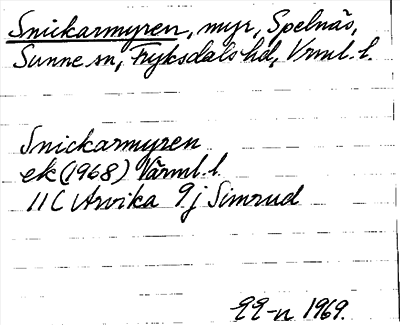 Snickarmyren, myr, Spelnäs,
Sunne sn, Fryksdals hd, Vrml. l.
Snickarmyren
ek (1968) Värml. l.
11 C Arvika 9 j Simrud
1969.